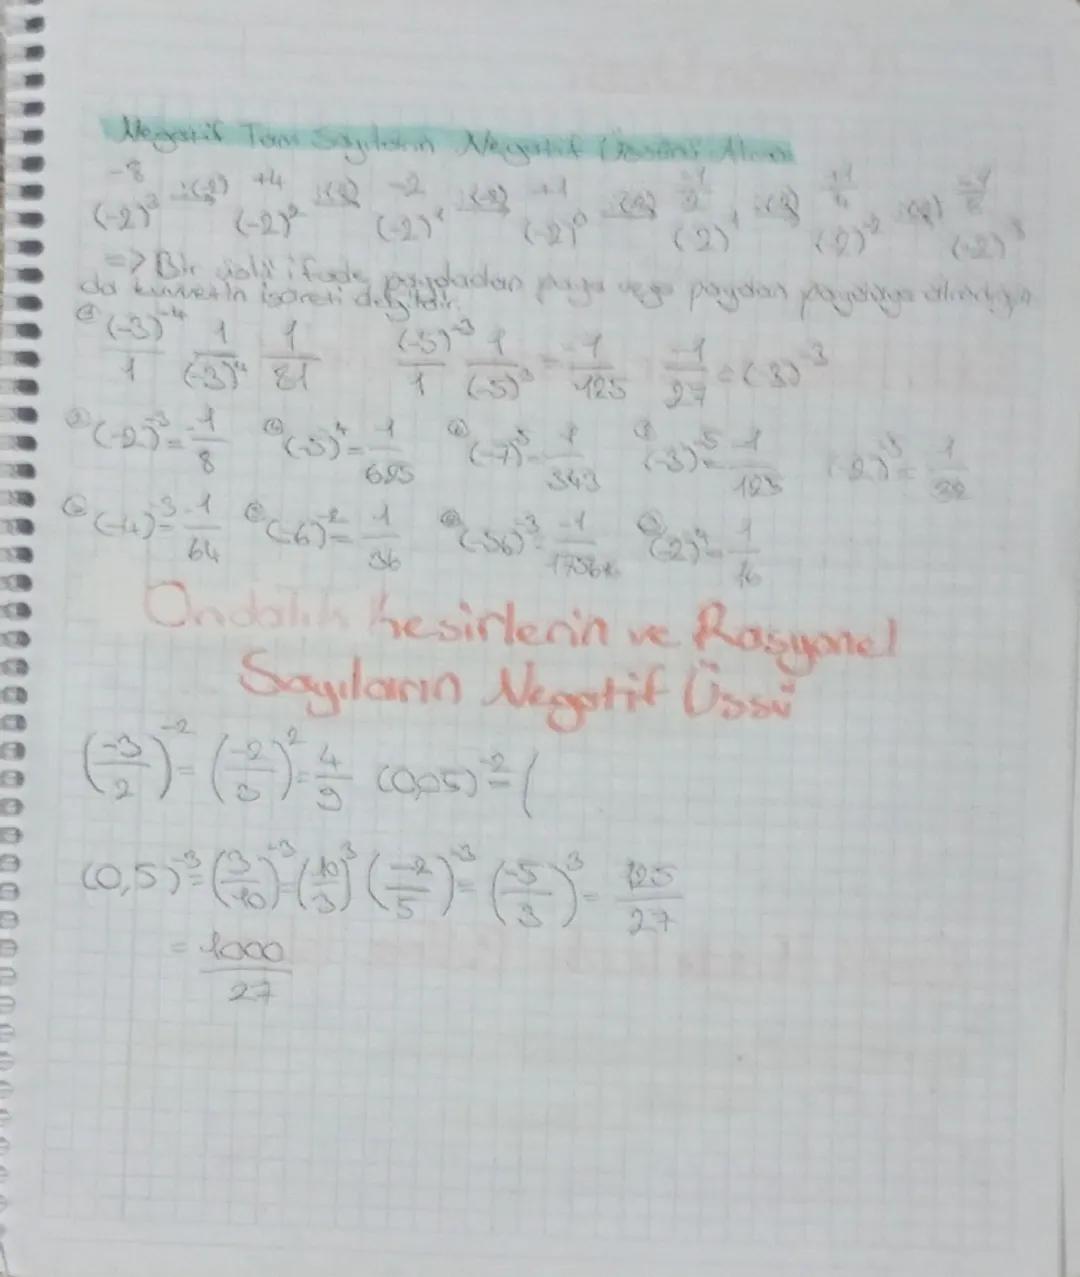 Negatif Tam Sayıların Negatif Üssünü Alma
-8 :(-2) +4 :(-2) -2 :(-2) +1 :(-2) -1/2 :(-2) +1/4 :(-2) -1/8
(-2)³ (-2)² (-2)¹ (-2)⁰ (-2)⁻² (-2)
=> Bir üslü ifade paydadan paya veya paydan paydaya alındığın
da kuvvetin işareti değişir.
(-3)⁻⁴/1 1/(-3)⁴ 1/81 (-5)⁻³/1 1/(-5)³ = -1/125 -1/27 = (-3)⁻³
(-2)⁻³ = -1/8 (-5)⁴ = 1/625 (-7)³ = 1/343 (-3)⁻⁵ = 1/123 1/32
(-4)⁻³ = -1/64 (-6)⁻² = 1/36 (-56)⁻³ = -1 (-2)⁴ = 1/16
Ondalık kesirlerin ve Rasyonel
Sayıların Negatif Üssü
(-3/2)⁻² = (-2/3)² = 4/9 (0,05)⁻² = (
(0,5)⁻³ = (3/10)⁻³ = (10/3)³ (-2/5)⁻³ = (-5/3)³ = 125/27
= 1000/27